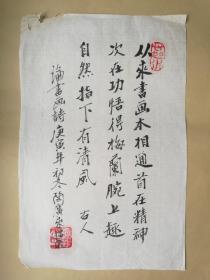 从来書画本相通首在精神
次在功悟得梅蘭腕上趣
自然指下有清風 古人
論書画詩庚寅年初冬